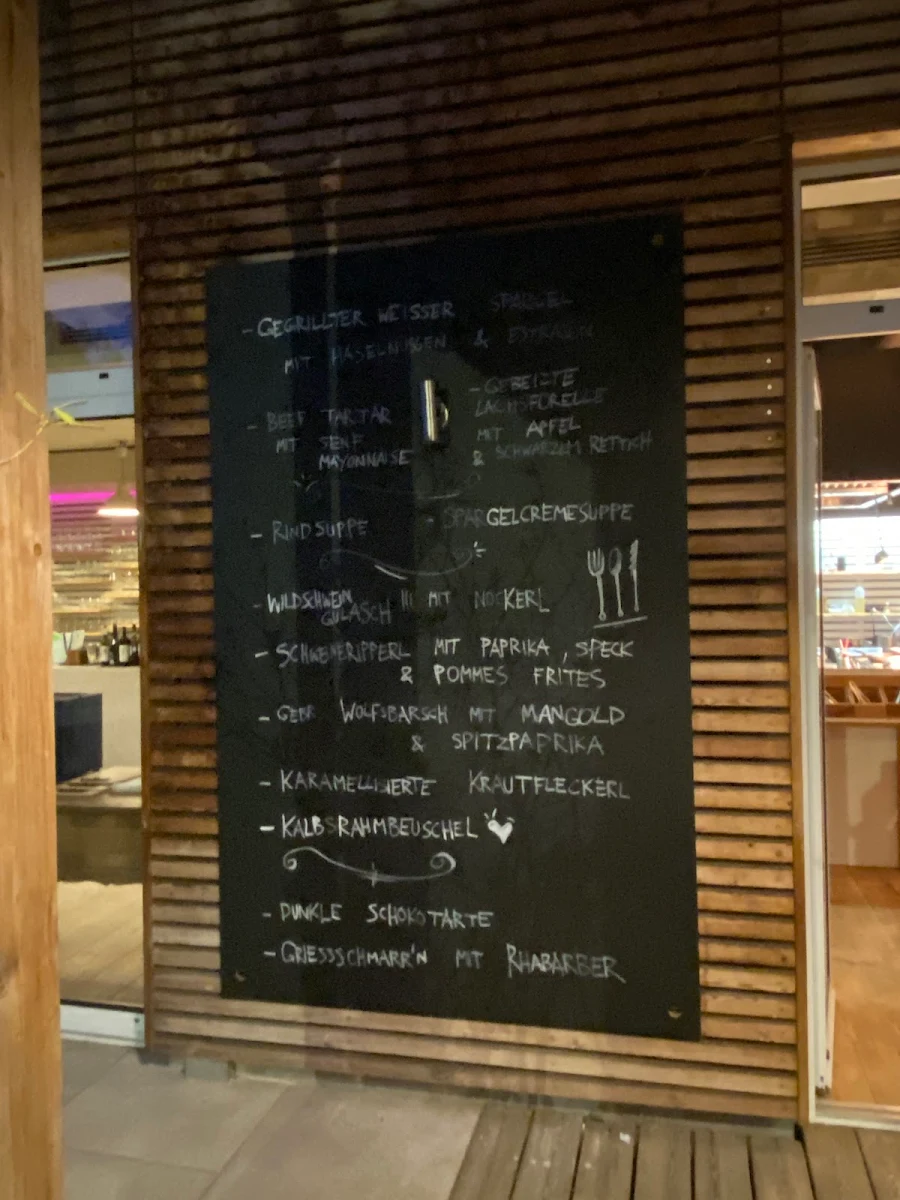 - GEGRILLTER WEISSER SPARGEL
MIT HASELNÜSSEN & ESTRAGON
- BEEF TARTAR
MIT SENF
MAYONNAISE
- GEBEIZTE
LACHSFORELLE
MIT APFEL
& SCHWARZEM RETTICH
- RINDSUPPE
- SPARGELCREMESUPPE
- WILDSCHWEIN
GULASCH !!! MIT NOCKERL
- SCHWEINERIPPERL MIT PAPRIKA, SPECK
& POMMES FRITES
- GEBR WOLFSBARSCH MIT MANGOLD
& SPITZPAPRIKA
- KARAMELLISIERTE KRAUTFLECKERL
- KALBSRAHMBEUSCHEL
- DUNKLE SCHOKOTARTE
- GRIESSSCHMARR'N MIT RHABARBER